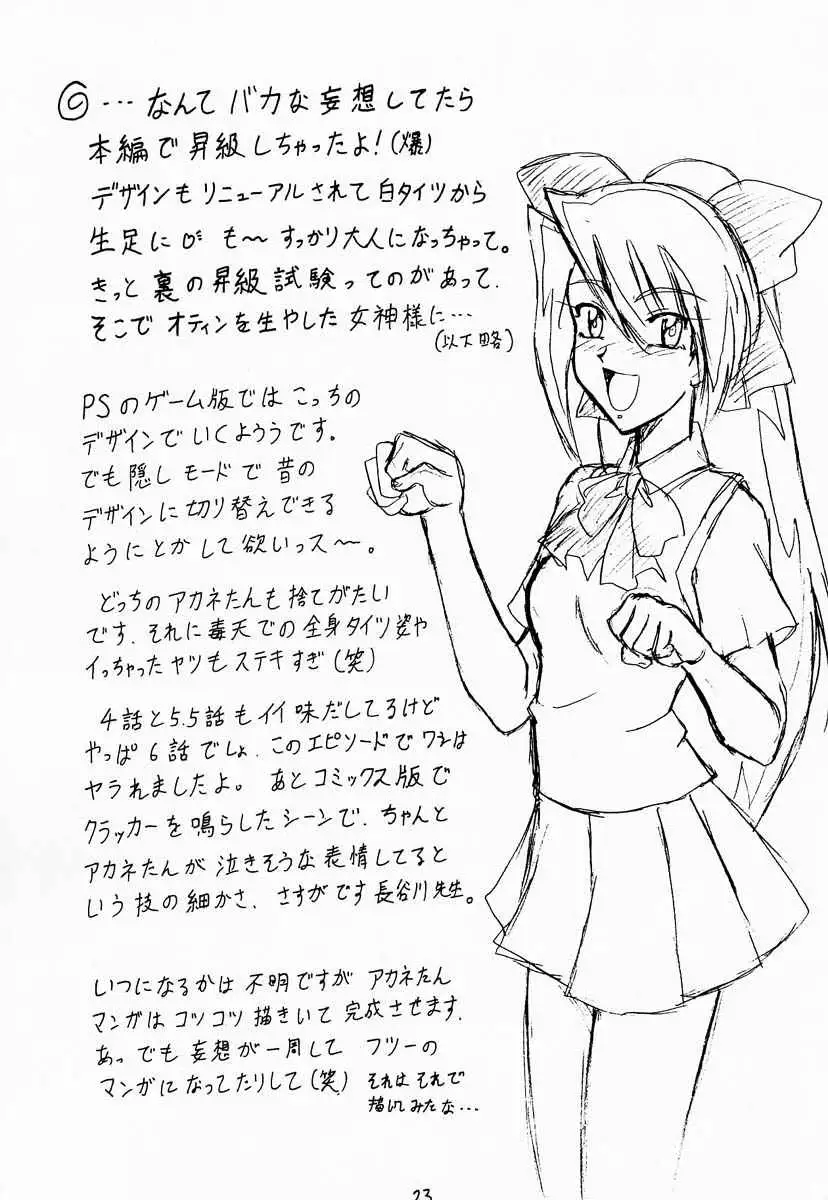 ◎…なんてバカな妄想してたら
本編で昇級しちゃったよ!(爆)
デザインもリニューアルされて白タイツから
生足に も〜すっかり大人になっちゃって。
きっと裏の昇級試験ってのがあって、
そこでオティンを生やした女神様に…
(以下略)
PSのゲーム版ではこっちの
デザインでいくようです。
でも隠しモードで昔の
デザインに切り替えできる
ようにとかして欲いっス〜。
どっちのアカネたんも捨てがたい
です、それに毒天での全身タイツ姿や
イっちゃったヤツもステキすぎ(笑)
4話と5.5話もイイ味だしてるけど
やっぱ6話でしょ、このエピソードでワシは
ヤラれましたよ。あとコミックス版で
クラッカーを鳴らしたシーンで、ちゃんと
アカネたんが泣きそうな表情してると
いう技の細かさ、さすがです長谷川先生。
いつになるかは不明ですがアカネたん
マンガはコツコツ描きいて完成させます、
あっでも妄想が一周してフツーの
マンガになってたりして(笑)それはそれで
描いてみたな…
23